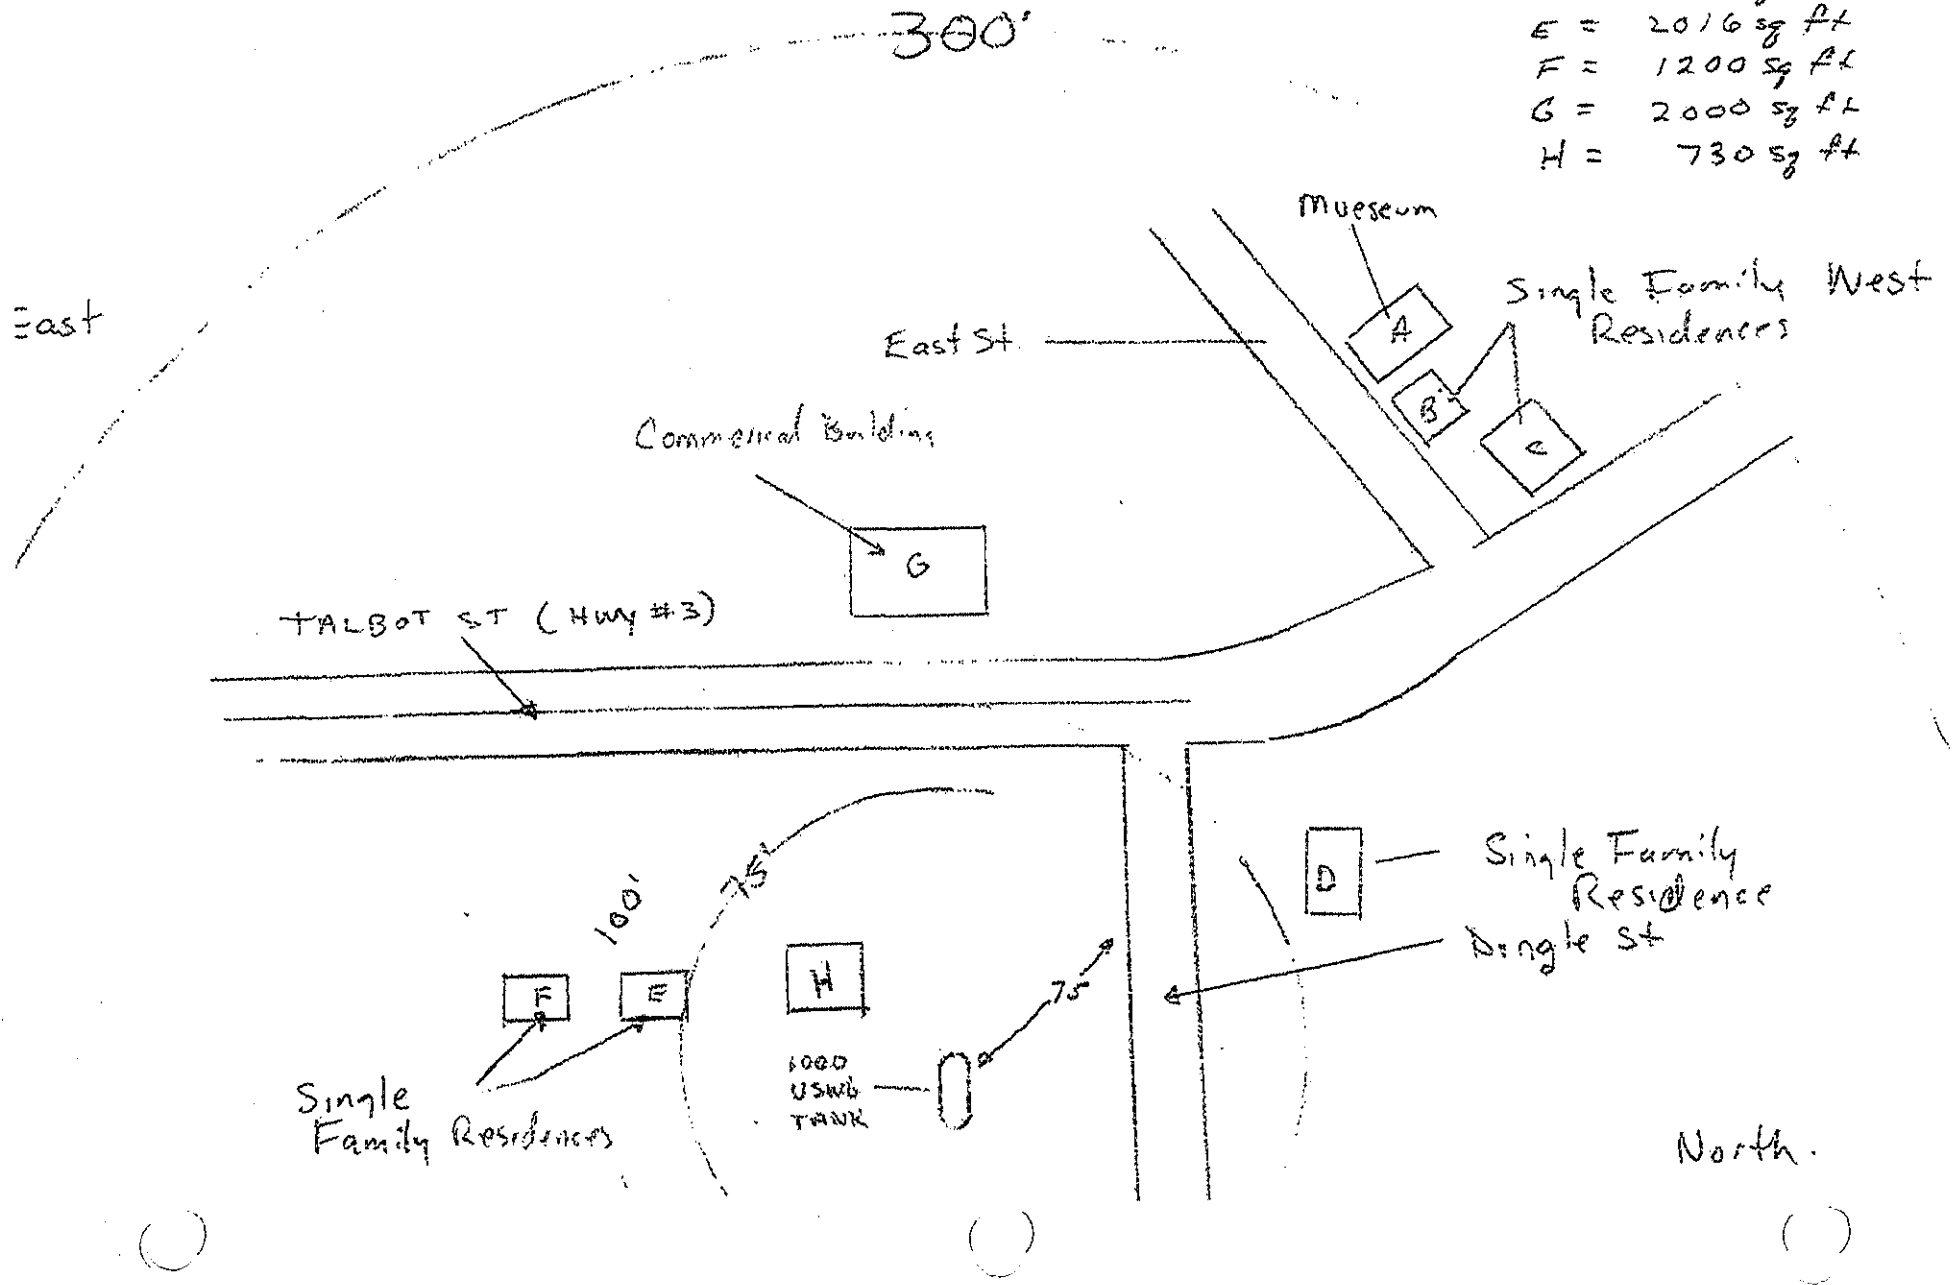 300'
E = 2016 sq ft
F = 1200 sq ft
G = 2000 sq ft
H = 730 sq ft
Mueseum
Single Family
Residences
West
East
East St.
A
B
C
Commerical Building
G
TALBOT ST (HWY #3)
75'
100'
D
Single Family
Residence
Dingle St
H
F
E
75
1000
USWG
TANK
Single
Family Residences
North.